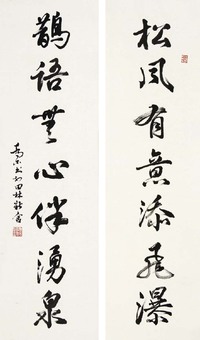 松风有意添飞瀑
鹊语無心伴湧泉